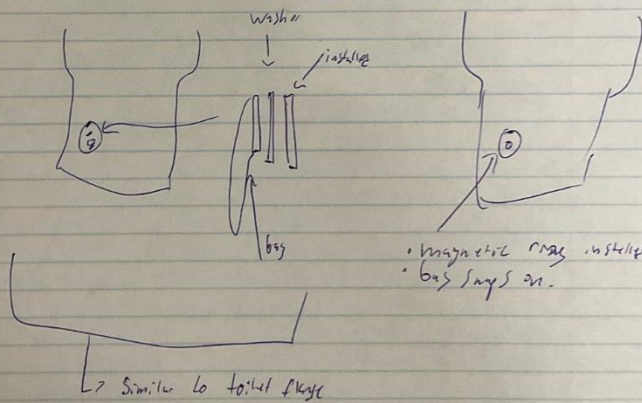 washer
installed
bag
• magnetic ring installed
• bag snaps on.
Similar to toilet flange